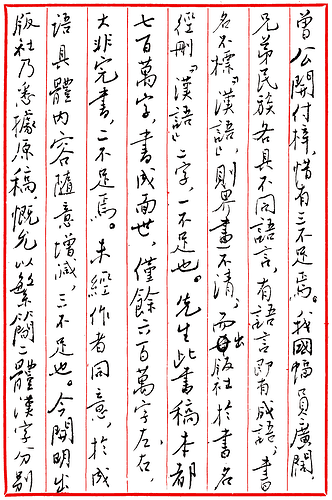 曾公開付梓，惜有三不足焉。我國幅員廣闊，
兄弟民族各具不同語言，有語言即有成語，書
名不標『漢語』，則界畫不清，而出版社於書名
徑刪『漢語』二字，一不足也。先生此書稿本都
七百萬字，書成面世，僅餘六百萬字左右，
大非完書，二不足焉。未經作者同意，於成
語具體內容隨意增減，三不足也。今開明出
版社乃悉據原稿，慨允以繁簡二體漢字分別